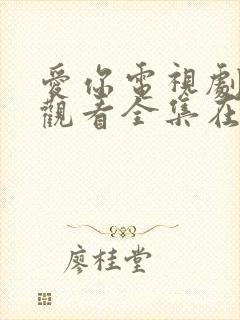 愛你電視劇
觀看全集在
廖桂堂